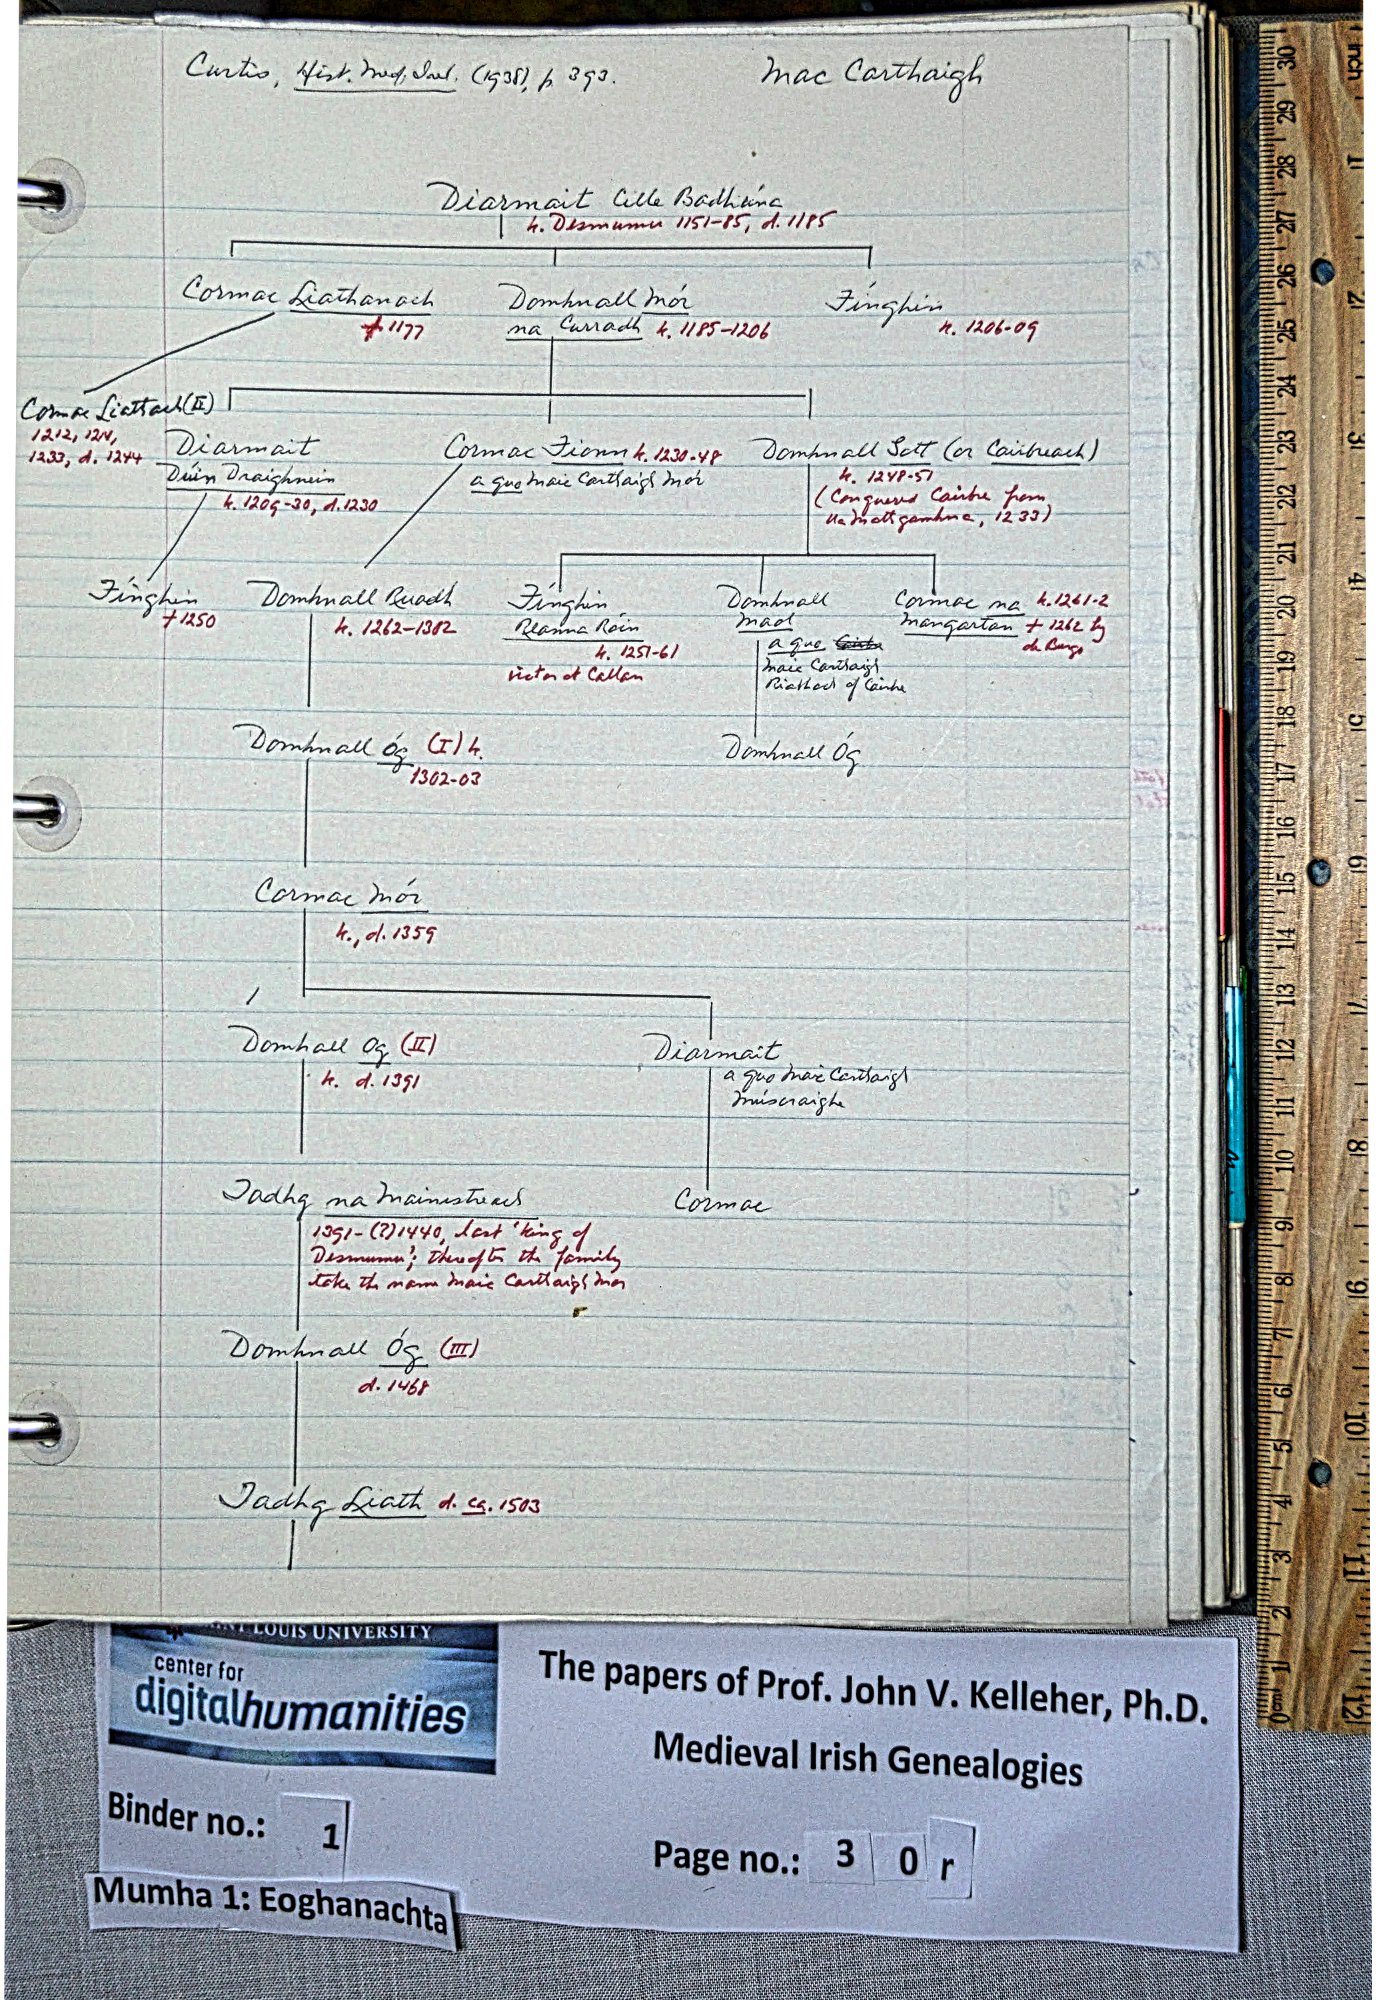 Curtis, Hist. Med. Irel. (1938), p 393.
Mac Carthaigh
Diarmait Cille Badhúna
k. Desmumu 1151-85, d. 1185
Cormac Liathanach
† 1177
Domhnall Mór
na Curradh k. 1185-1206
Finghin
k. 1206-09
Cormac Liathach (II)
1212,
1233, d. 1244
Diarmait
Dúin Draighnein
k. 1209-30, d. 1230
Cormac Fionn k. 1230-48
a quo Maic Carthaigh Mór
Domhnall Gott (or Cairbreach)
k. 1248-51
(Conquered Cairbre from
Ua Mathgamhna, 1233)
Finghin
† 1250
Domhnall Ruadh
k. 1262-1302
Finghin
Reanna Róin
k. 1251-61
victor at Callan
Domhnall
Maol
a quo
Maic Carthaigh
Riabhach of Cairbre
Cormac na
Mangartan
k. 1261-2
† 1262 by
de Burgo
Domhnall Óg (I) k.
1302-03
Domhnall Óg
Cormac Mór
k., d. 1359
Domhall Og (II)
k. d. 1391
Diarmait
a quo Maic Carthaigh
Múscraighe
Tadhg na Mainistreach
1391-(?)1440, last 'king of
Desmumu'; thereafter the family
take the name Maic Carthaigh Mór
Cormac
Domhnall Óg (III)
d. 1468
Tadhg Liath d. ca. 1503
SAINT LOUIS UNIVERSITY
center for
digitalhumanities
The papers of Prof. John V. Kelleher, Ph.D.
Medieval Irish Genealogies
Binder no.: 1
Page no.: 3 0 r
Mumha 1: Eoghanachta